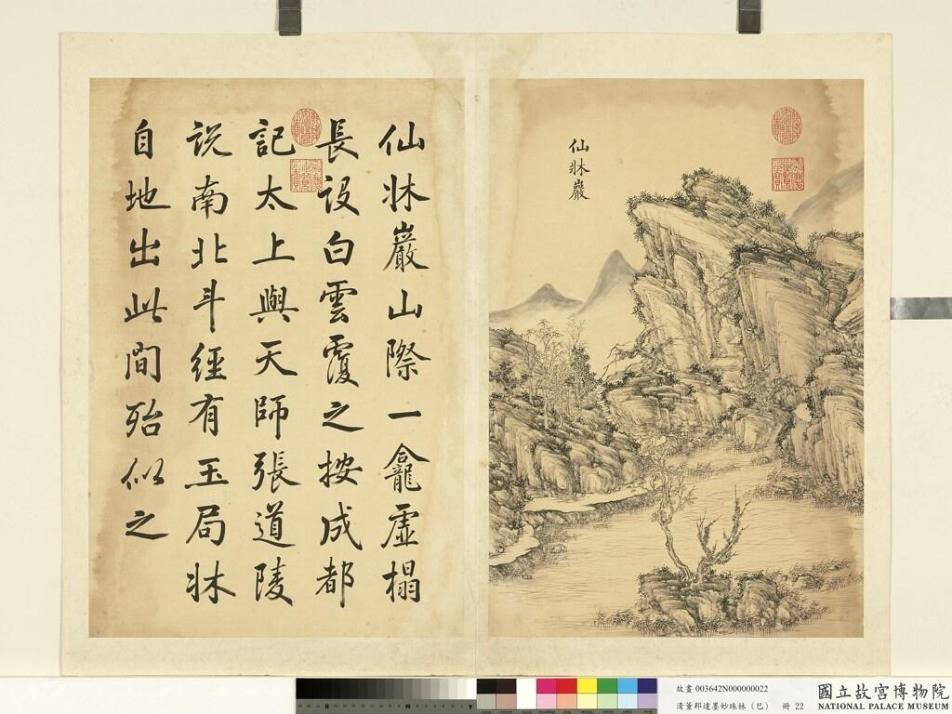 仙牀巖
仙牀巖山際一龕虛榻
長設白雲覆之按成都
記太上與天師張道陵
說南北斗經有玉局牀
自地出此間殆似之
故畫 003642N000000022
清董邦達墨妙珠林（巳） 冊 22
國立故宮博物院
NATIONAL PALACE MUSEUM